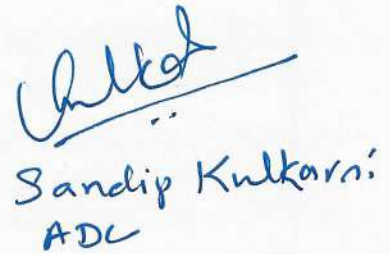 Sandip Kulkarni
ADC